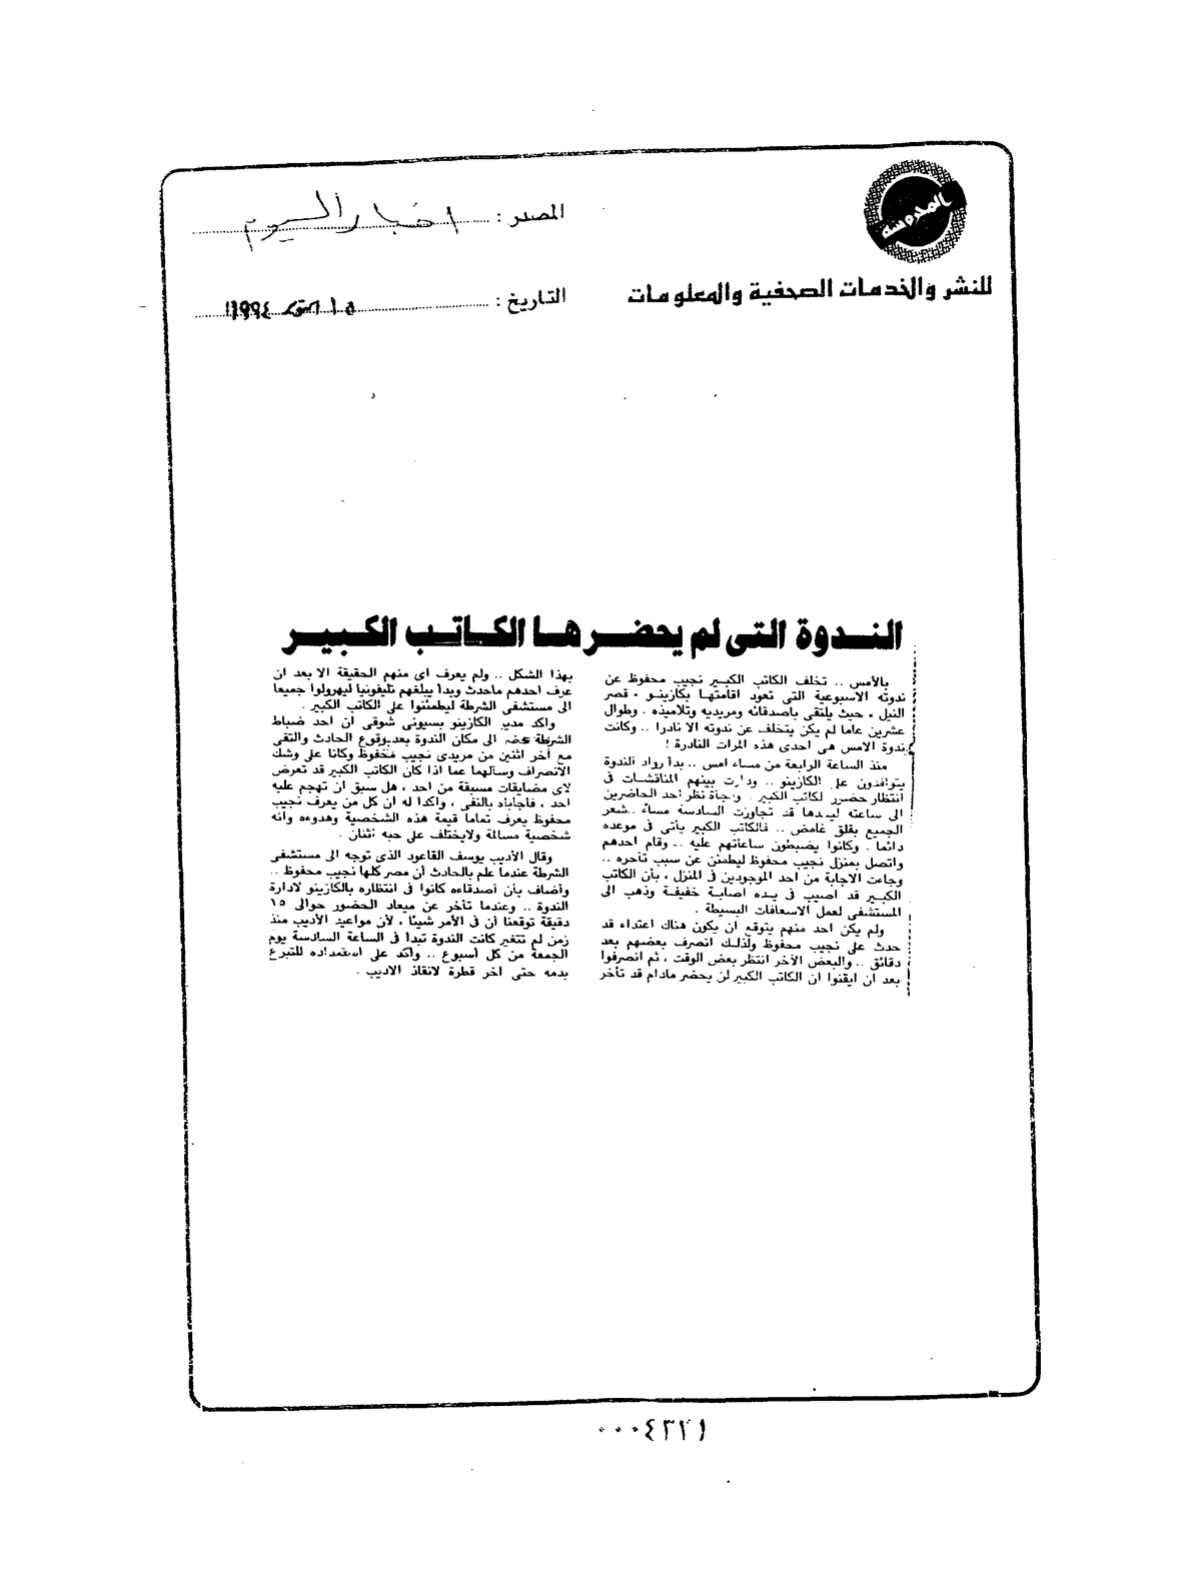 المحروسة
للنشر والخدمات الصحفية والمعلومات
المصدر : اخبار اليوم
التاريخ : ١٥ اكتوبر ١٩٩٤
الندوة التى لم يحضرها الكاتب الكبير
بالأمس .. تخلف الكاتب الكبير نجيب محفوظ عن
ندوته الاسبوعية التى تعود اقامتها بكازينو ، قصر
النيل ، حيث يلتقى باصدقائه ومريديه وتلاميذه . وطوال
عشرين عاما لم يكن يتخلف عن ندوته الا نادرا .. وكانت
ندوة الامس هى احدى هذه المرات النادرة !
منذ الساعة الرابعة من مساء امس .. بدأ رواد الندوة
يتوافدون على الكازينو .. ودارت بينهم المناقشات فى
انتظار حضور الكاتب الكبير . وفجأة نظر احد الحاضرين
الى ساعته ليجدها قد تجاوزت السادسة مساء .. شعر
الجميع بقلق غامض .. فالكاتب الكبير يأتى فى موعده
دائما . وكانوا يضبطون ساعاتهم عليه .. وقام احدهم
واتصل بمنزل نجيب محفوظ ليطمئن عن سبب تأخره ..
وجاءت الاجابة من احد الموجودين فى المنزل ، بأن الكاتب
الكبير قد اصيب فى يده اصابة خفيفة وذهب الى
المستشفى لعمل الاسعافات البسيطة .
ولم يكن احد منهم يتوقع ان يكون هناك اعتداء قد
حدث على نجيب محفوظ ولذلك انصرف بعضهم بعد
دقائق .. والبعض الآخر انتظر بعض الوقت ، ثم انصرفوا
بعد ان ايقنوا ان الكاتب الكبير لن يحضر مادام قد تأخر
بهذا الشكل .. ولم يعرف اى منهم الحقيقة الا بعد ان
عرف احدهم ماحدث وبدأ يبلغهم تليفونيا ليهرولوا جميعا
الى مستشفى الشرطة ليطمئنوا على الكاتب الكبير .
واكد مدير الكازينو بسيونى شوقى ان احد ضباط
الشرطة حضر الى مكان الندوة بعد وقوع الحادث والتقى
مع آخر اثنين من مريدى نجيب محفوظ وكانا على وشك
الانصراف وسألهما عما اذا كان الكاتب الكبير قد تعرض
لاى مضايقات مسبقة من احد ، هل سبق ان تهجم عليه
احد ، فاجاباه بالنفى ، واكدا له ان كل من يعرف نجيب
محفوظ يعرف تماما قيمة هذه الشخصية وهدوءه وانه
شخصية مسالمة ولايختلف على حبه اثنان .
وقال الأديب يوسف القاعود الذى توجه الى مستشفى
الشرطة عندما علم بالحادث أن مصر كلها نجيب محفوظ ..
وأضاف بأن أصدقاءه كانوا فى انتظاره بالكازينو لادارة
الندوة .. وعندما تأخر عن ميعاد الحضور حوالى ١٥
دقيقة توقعنا أن فى الأمر شيئا ، لأن مواعيد الأديب منذ
زمن لم تتغير كانت الندوة تبدأ فى الساعة السادسة يوم
الجمعة من كل أسبوع .. وأكد على استعداده للتبرع
بدمه حتى اخر قطرة لانقاذ الاديب .
٠٠٠٤٣٢١